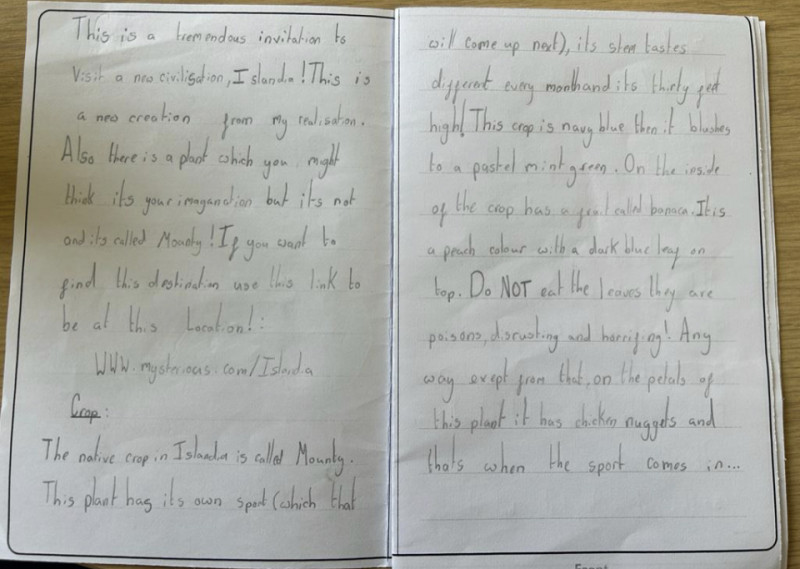 This is a tremendous invitation to
visit a new civilisation, Islandia! This is
a new creation from my realisation.
Also there is a plant which you might
think its your imaganation but its not
and its called Mounty! If you want to
find this destination use this link to
be at this location!:
WWW.mysterious.com/Islandia
Crop:
The native crop in Islandia is called Mounty.
This plant has its own sport (which that
will come up next), its stem tastes
different every month and its thirty feet
high! This crop is navy blue then it blushes
to a pastel mint green. On the inside
of the crop has a fruit called banaca. It is
a peach colour with a dark blue leaf on
top. Do NOT eat the leaves they are
poisons, discusting and horrifing! Any
way exept from that, on the petals of
this plant it has chicken nuggets and
thats when the sport comes in...